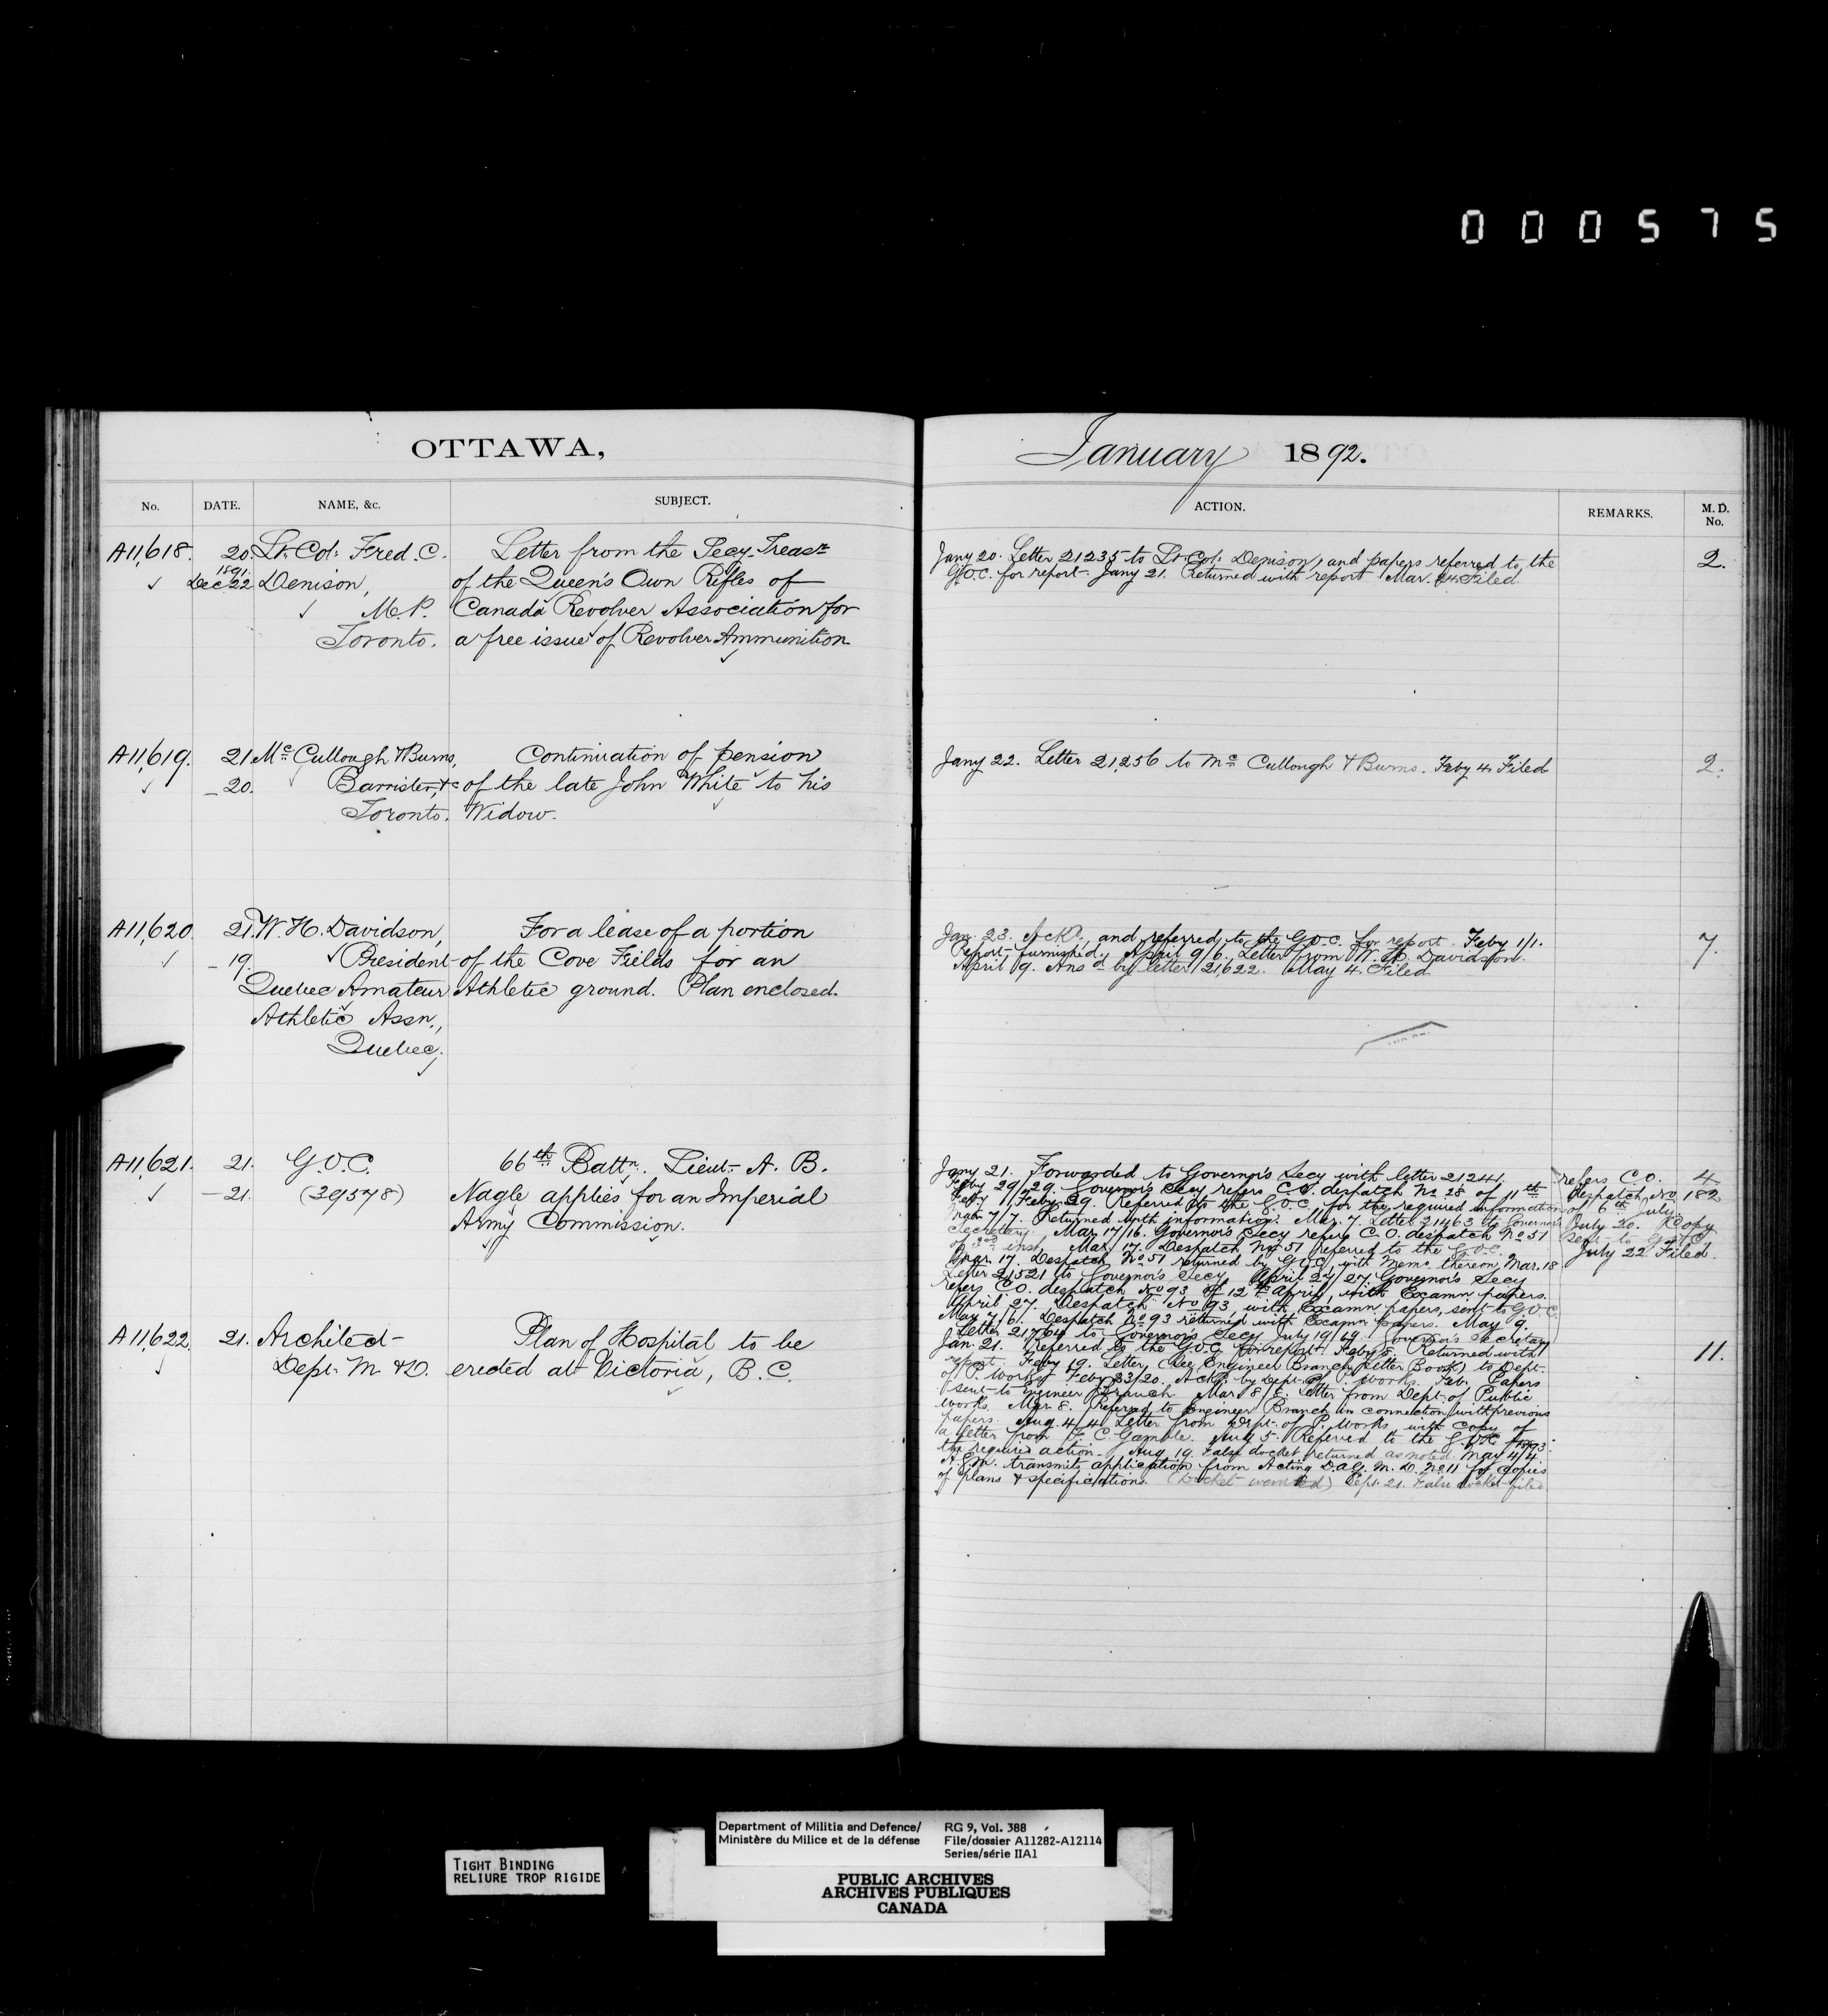 000575
OTTAWA,
January 1892.
No. DATE. NAME, &c. SUBJECT.
ACTION. REMARKS. M. D. No.
A11,618. 20. Lt. Col. Fred. C. Letter from the Secy. Treasr
1891.
Dec 22 Denison, of the Queen's Own Rifles of
M.P. Canada Revolver Association for
Toronto. a free issue of Revolver Ammunition
Jany 20. Letter 21235 to Lt Col. Denison, and papers referred to the 2.
G.O.C. for report. Jany 21. Returned with report Mar. 14 Filed.
A11,619. 21 Mc Cullough & Burns, Continuation of pension
20. Barrister, &c of the late John White to his
Toronto. Widow.
Jany 22. Letter 21,256 to Mc Cullough & Burns. Feby 4. Filed 2.
A11,620. 21. W. H. Davidson, For a lease of a portion
19. President of the Cove Fields for an
Quebec Amateur Athletic ground. Plan enclosed.
Athletic Assn.,
Quebec.
Jan. 23. Ackd., and referred to the G.O.C. for report. Feby 1/1. 7.
Report furnished. April 9/6. Letter from W. H. Davidson.
April 9. Ansd by letter 21622. May 4. Filed
A11,621. 21. G.O.C. 66th Battn. Lieut. A. B.
21. (39578) Nagle applies for an Imperial
Army Commission.
Jany 21. Forwarded to Governor's Secy with letter 21241.
Feby 29/29. Governor's Secy refers C.O. despatch No 28 of 11th
Feby / Feby 29. Referred to the G.O.C. for the required information
Mar 7/7. Returned with information. Mar. 7. Letter 21463 to Governor's
Secretary. Mar 17/16. Governor's Secy refers C.O. despatch No 51
of 3rd inst. Mar. 17. Despatch No 51 referred to the G.O.C.
Mar. 17. Despatch No 51 returned by G.O.C. with Memo thereon, Mar. 18
Letter 21521 to Governor's Secy. April 27/27. Governor's Secy
refers C.O. despatch No 93 of 12th April, with Examn papers.
April 27. Despatch No 93, with Examn papers, sent to G.O.C.
May 7/6. Despatch No 93 returned with Examn papers. May 9.
Letter 21764 to Governor's Secy July 19/19. Governor's Secretary
refers C.O. 4
Despatch No 182
of 6th July
July 20. Copy
sent to G.O.C.
July 22 Filed.
A11,622. 21. Architect Plan of Hospital to be
Dept. M & D. erected at Victoria, B.C.
Jan. 21. Referred to the G.O.C. for report. Feby 8. Returned with 11.
report. Feby 19. Letter, (See Engineer Branch Letter Book) to Dept.
of P. Works Feby 23/20. Ackd. by Dept. of P. Works. Feb. Papers
sent to Engineer Branch. Mar 8/8. Letter from Dept. of Public
Works. Mar 8. Referred to Engineer Branch in connection with previous
papers. Aug. 4/4. Letter from Dept. of P. Works with copy of
a letter from F. C. Gamble. Aug 5. Referred to the G.O.C. for
the required action. Aug. 19. False docket returned as noted. 1893. May 4/4
A.G.M. transmits application from Acting D.A.G. M.D. No. 11 for copies
of plans & specifications. (Docket wanted) Sept. 21. False docket filed
TIGHT BINDING
RELIURE TROP RIGIDE
Department of Militia and Defence/ RG 9, Vol. 388
Ministère du Milice et de la défense File/dossier A11282-A12114
Series/série IIA1
PUBLIC ARCHIVES
ARCHIVES PUBLIQUES
CANADA